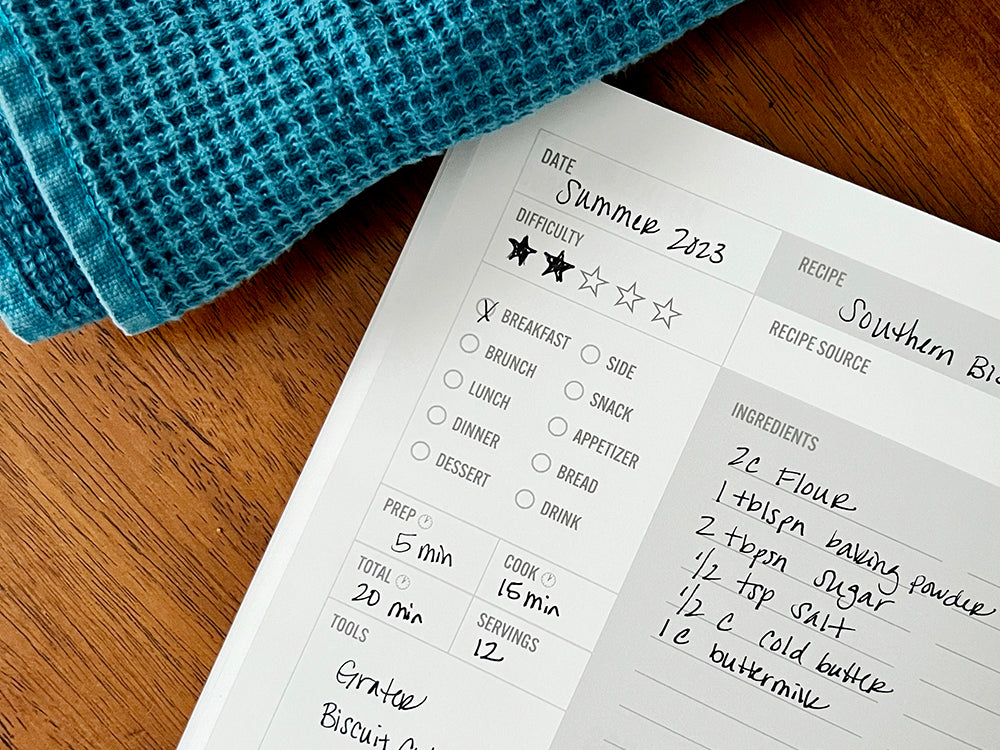 DATE
Summer 2023
DIFFICULTY
BREAKFAST
BRUNCH
LUNCH
DINNER
DESSERT
SIDE
SNACK
APPETIZER
BREAD
DRINK
PREP
5 min
COOK
15 min
TOTAL
20 min
SERVINGS
12
TOOLS
Grater
Biscuit
RECIPE
Southern
RECIPE SOURCE
INGREDIENTS
2c Flour
1 tblspn baking powder
2 tbpsn sugar
1/2 tsp salt
1/2 c cold butter
1c buttermilk